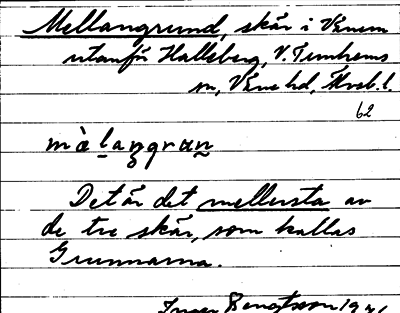 Mellangrund, skär i Vänern
utanför Halleberg, V. Tunhems
sn, Väne hd, Älvsb. l.
62
màlaŋgran
Det är det mellersta av
de tre skär, som kallas
Grunnarna.
Bengtsson